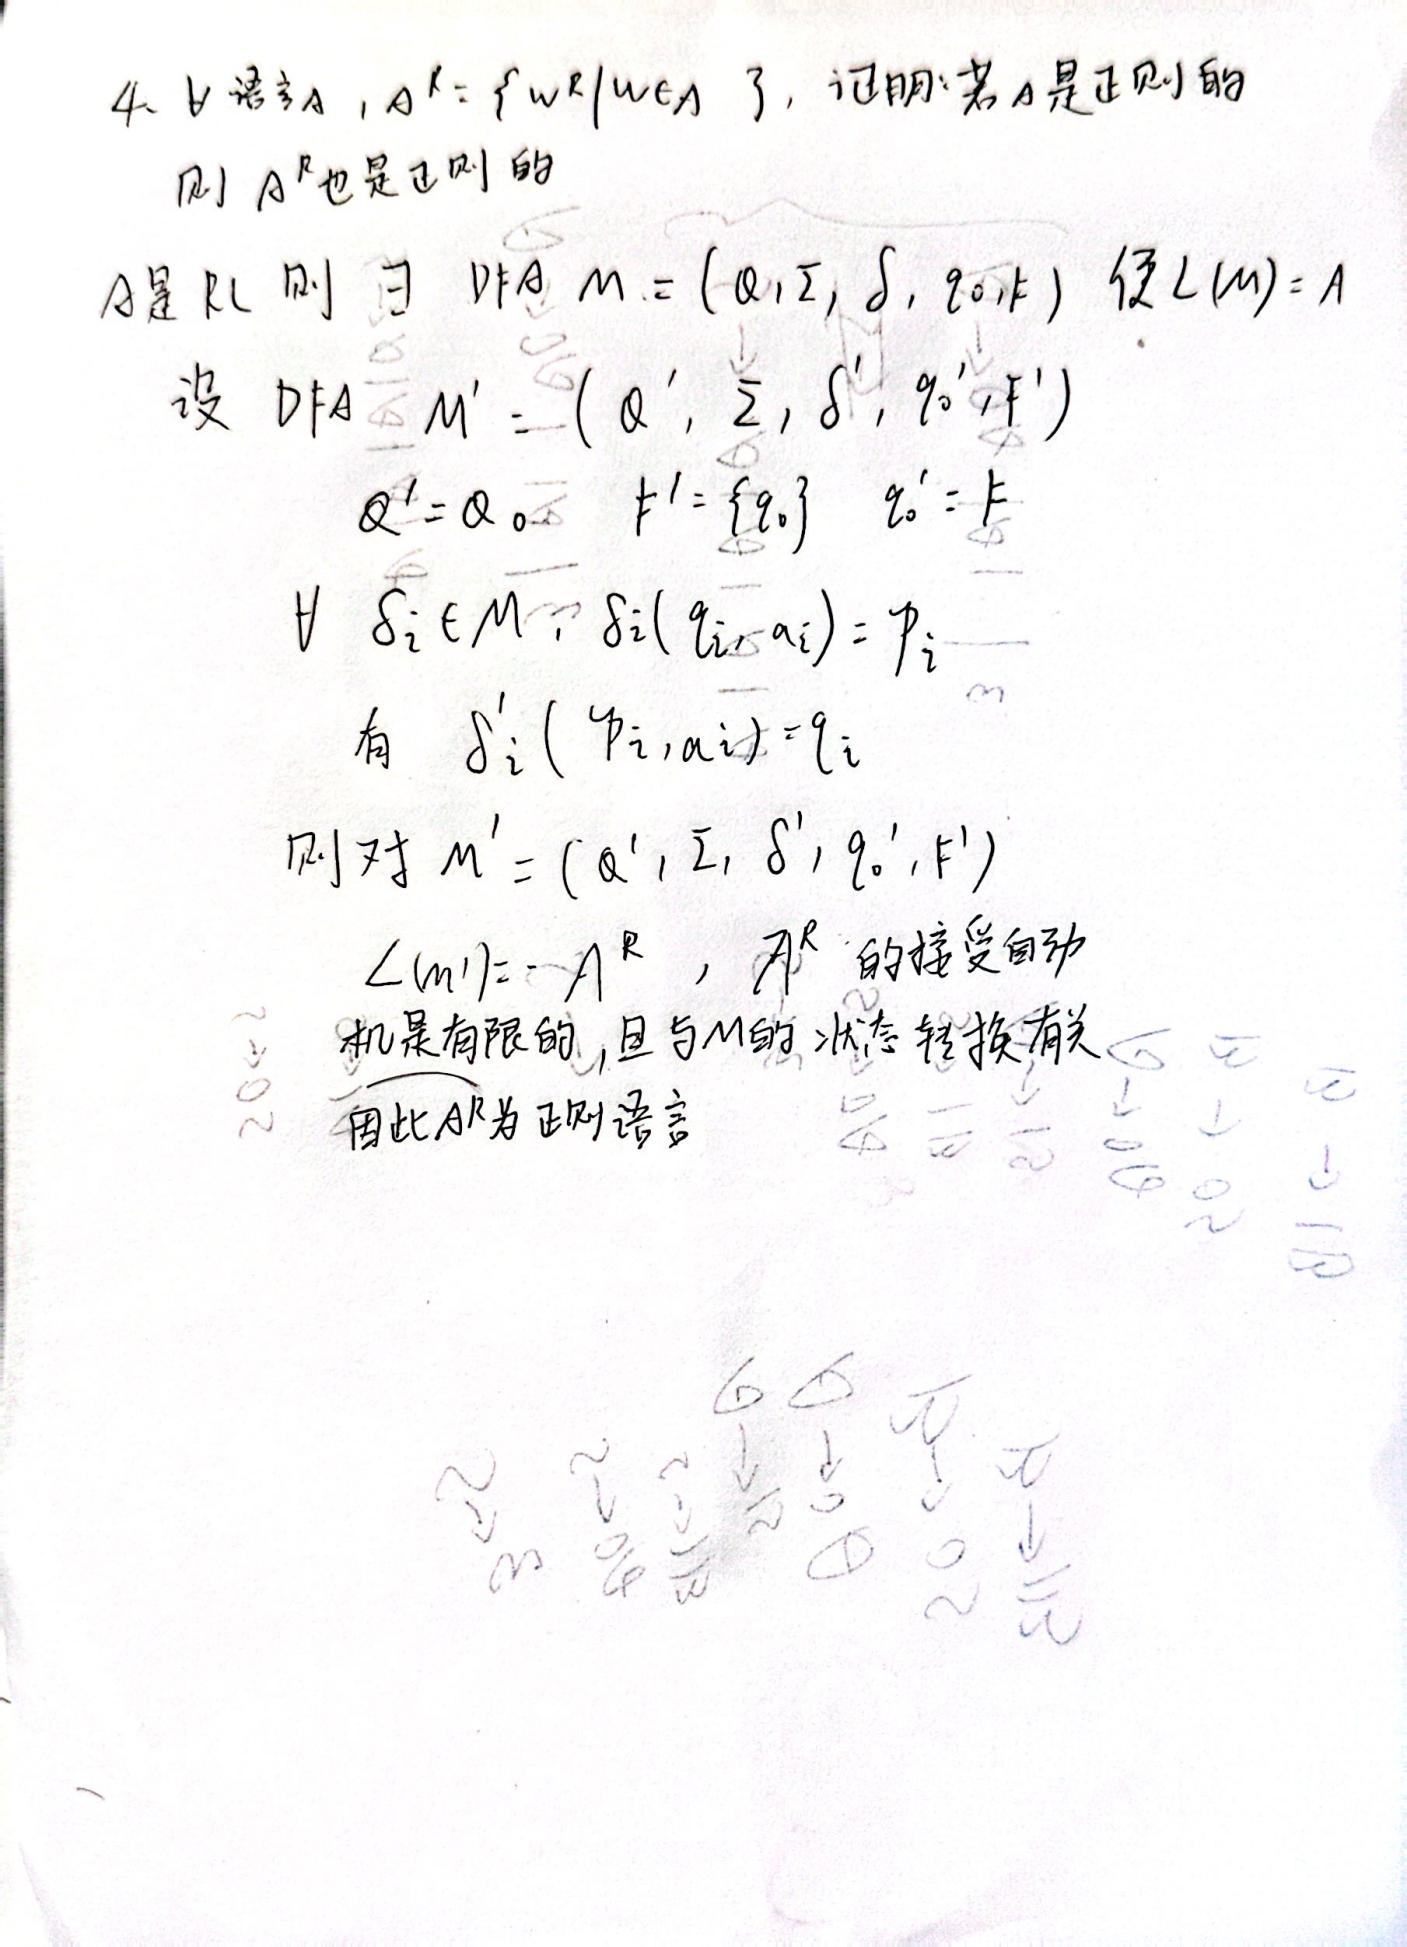 4. ∀语言A, A^R = {w^R | w∈A }, 证明:若A是正则的
则 A^R也是正则的
A是RL 则 ∃ DFA M = (Q, Σ, δ, q₀, F) 使L(M) = A
设 DFA M' = (Q', Σ, δ', q₀', F')
Q' = Q。 F' = {q₀} q₀' = F
∀ δᵢ∈M, δᵢ(qᵢ, aᵢ) = pᵢ
有 δ'ᵢ(pᵢ, aᵢ) = qᵢ
则对 M' = (Q', Σ, δ', q₀', F')
L(M') = A^R , A^R 的接受自动
机是有限的,且与M的状态转换有关
因此A^R为正则语言